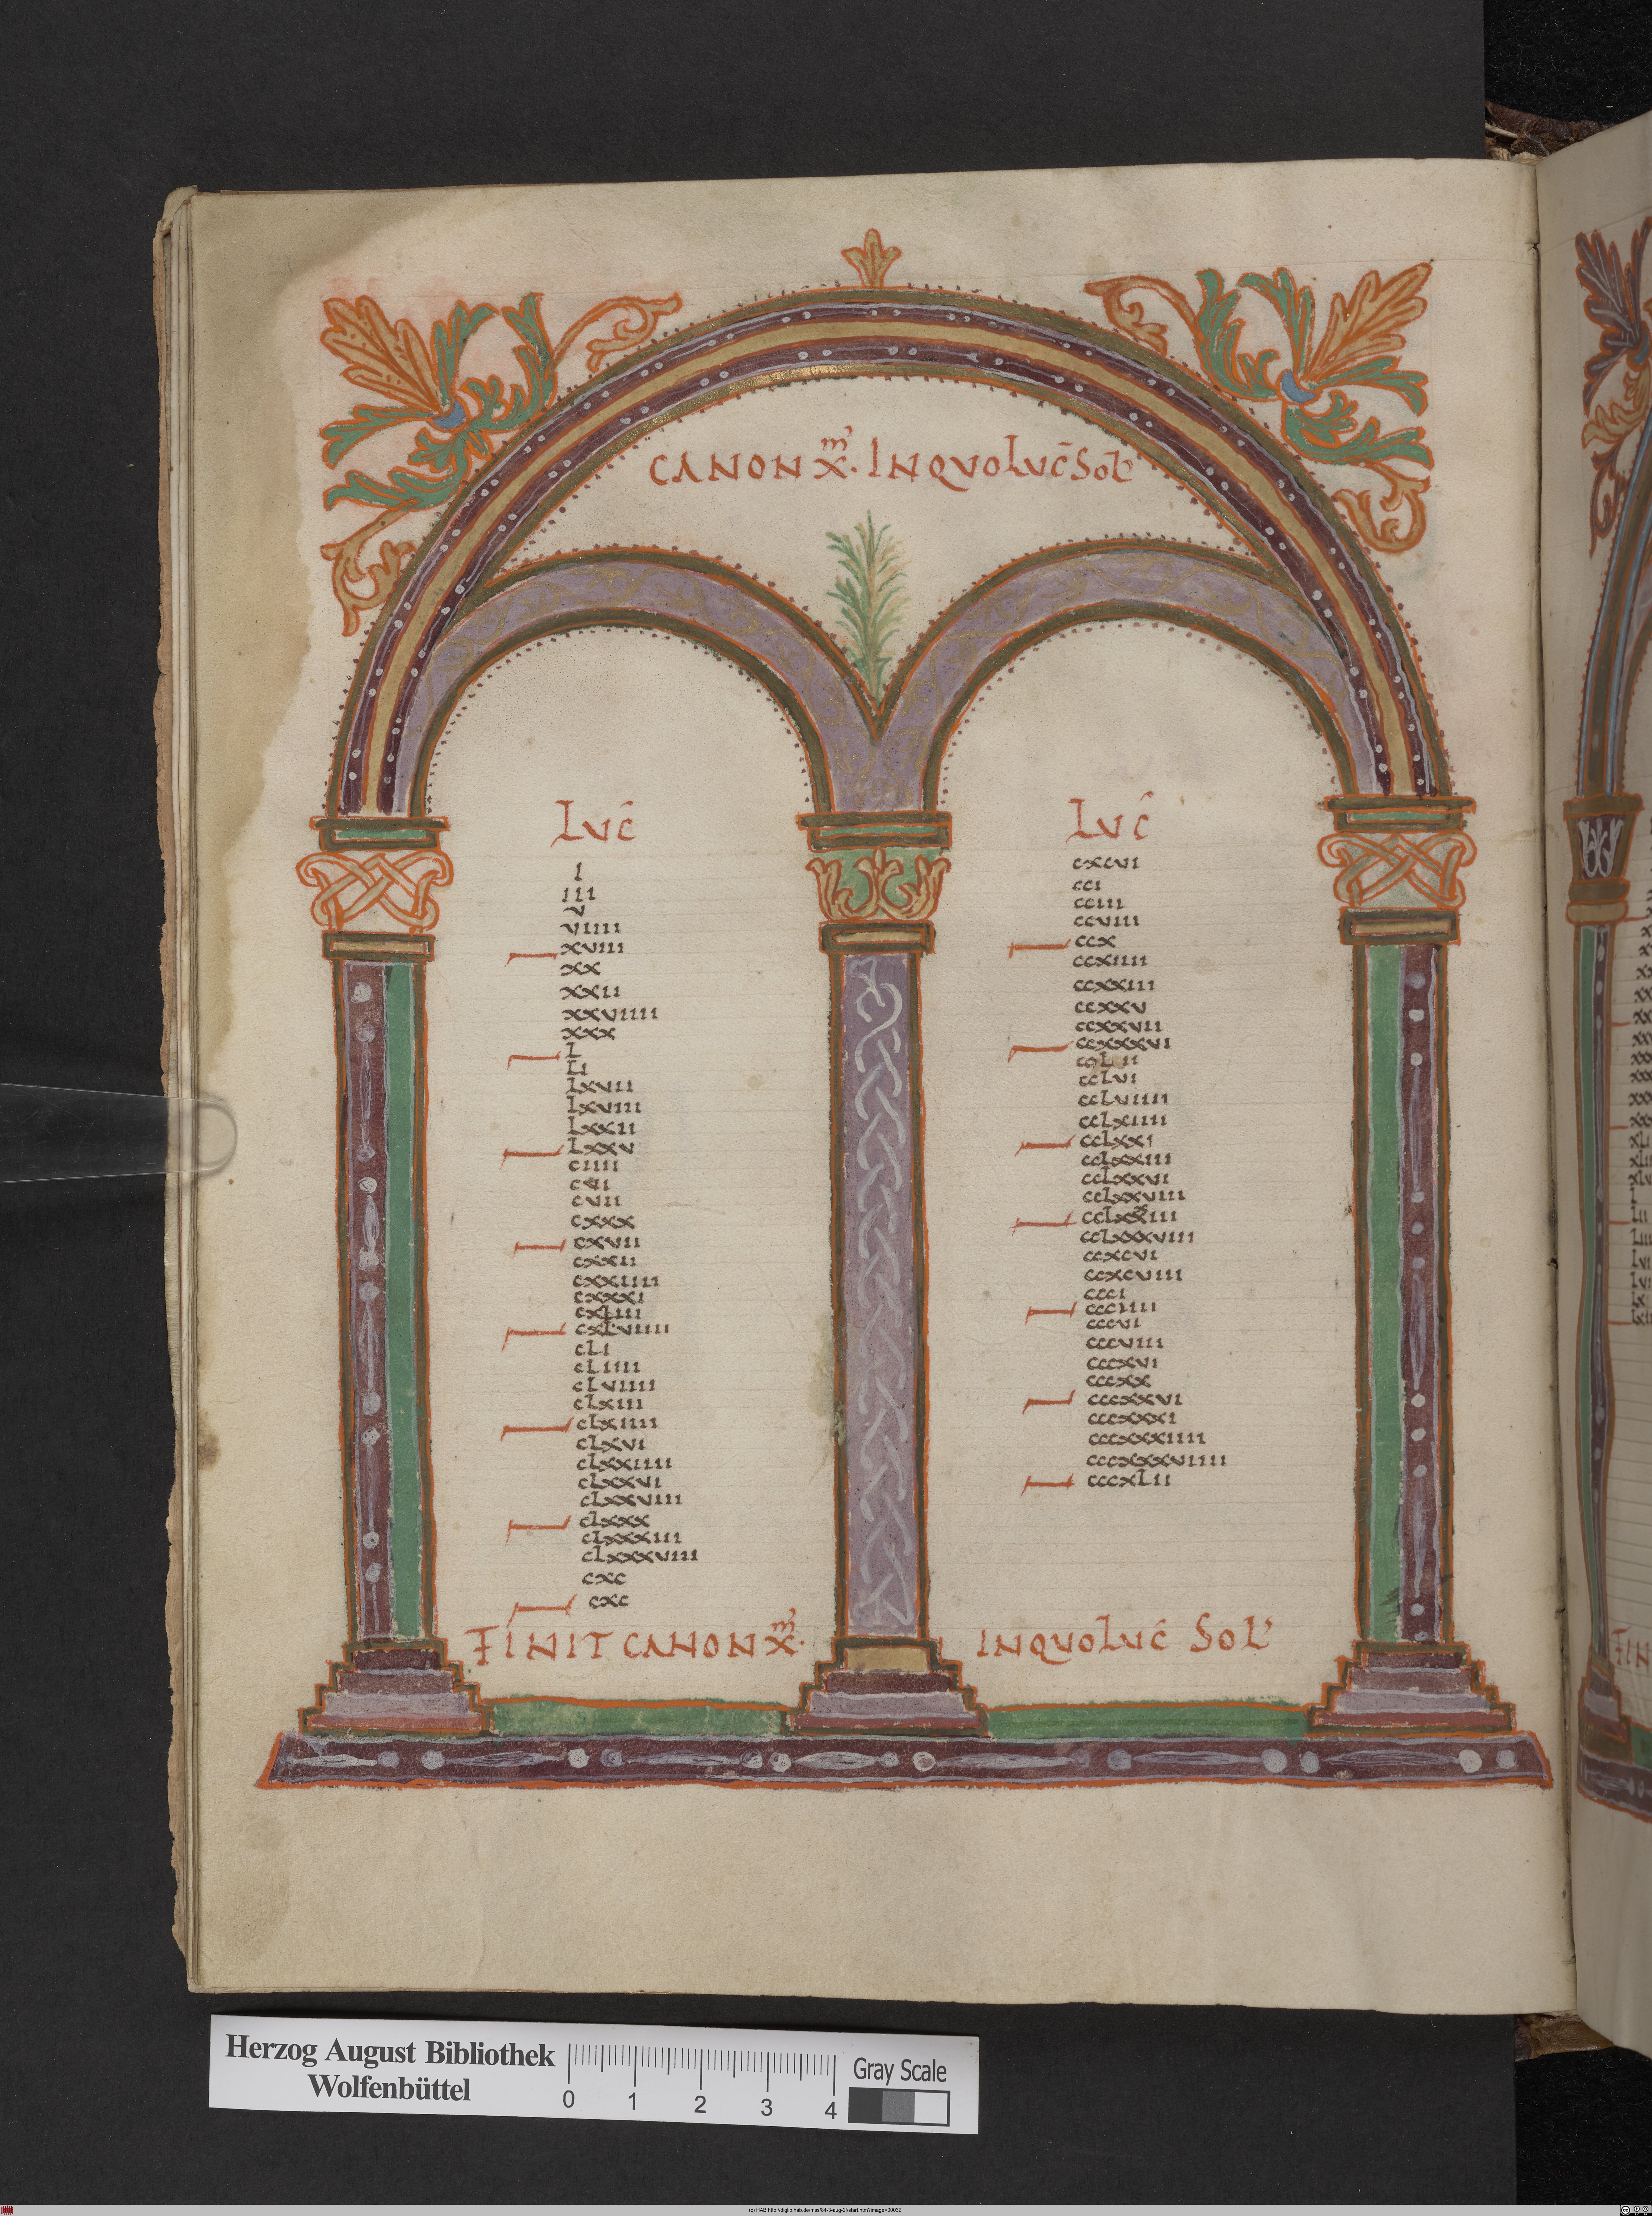 CANON X.m INQVO LVC̄ SOL'
LVC̄
I
III
V
VIIII
XVIII
XX
XXII
XXVIIII
XXX
L
LI
LXVII
LXVIII
LXXII
LXXV
CIIII
CVII
CXXX
CXVII
CXXII
CXXIIII
CXXXI
CXLIII
CXLVIIII
CLI
CLIIII
CLVIIII
CLXIII
CLXIIII
CLXVI
CLXXIIII
CLXXVI
CLXXVIII
CLXXX
CLXXXIII
CLXXXVIII
CXC
CXC
LVC̄
CXCVI
CCI
CCIII
CCVIII
CCX
CCXIIII
CCXXIII
CCXXV
CCXXVII
CCXXXVI
CCLVI
CCLVIIII
CCLXIIII
CCLXXI
CCLXXIII
CCLXXVI
CCLXXVIII
CCLXXXIII
CCLXXXVIII
CCXCVI
CCXCVIII
CCCI
CCCIIII
CCCVI
CCCVIII
CCCXVI
CCCXX
CCCXXVI
CCCXXXI
CCCXXXIIII
CCCXXXVIIII
CCCXLII
FINIT CANON X.m INQVO LVC̄ SOL'
Herzog August Bibliothek
Wolfenbüttel
0 1 2 3 4
Gray Scale
(c) HAB http://diglib.hab.de/mss/84-3-aug-2f/start.htm?image=00032